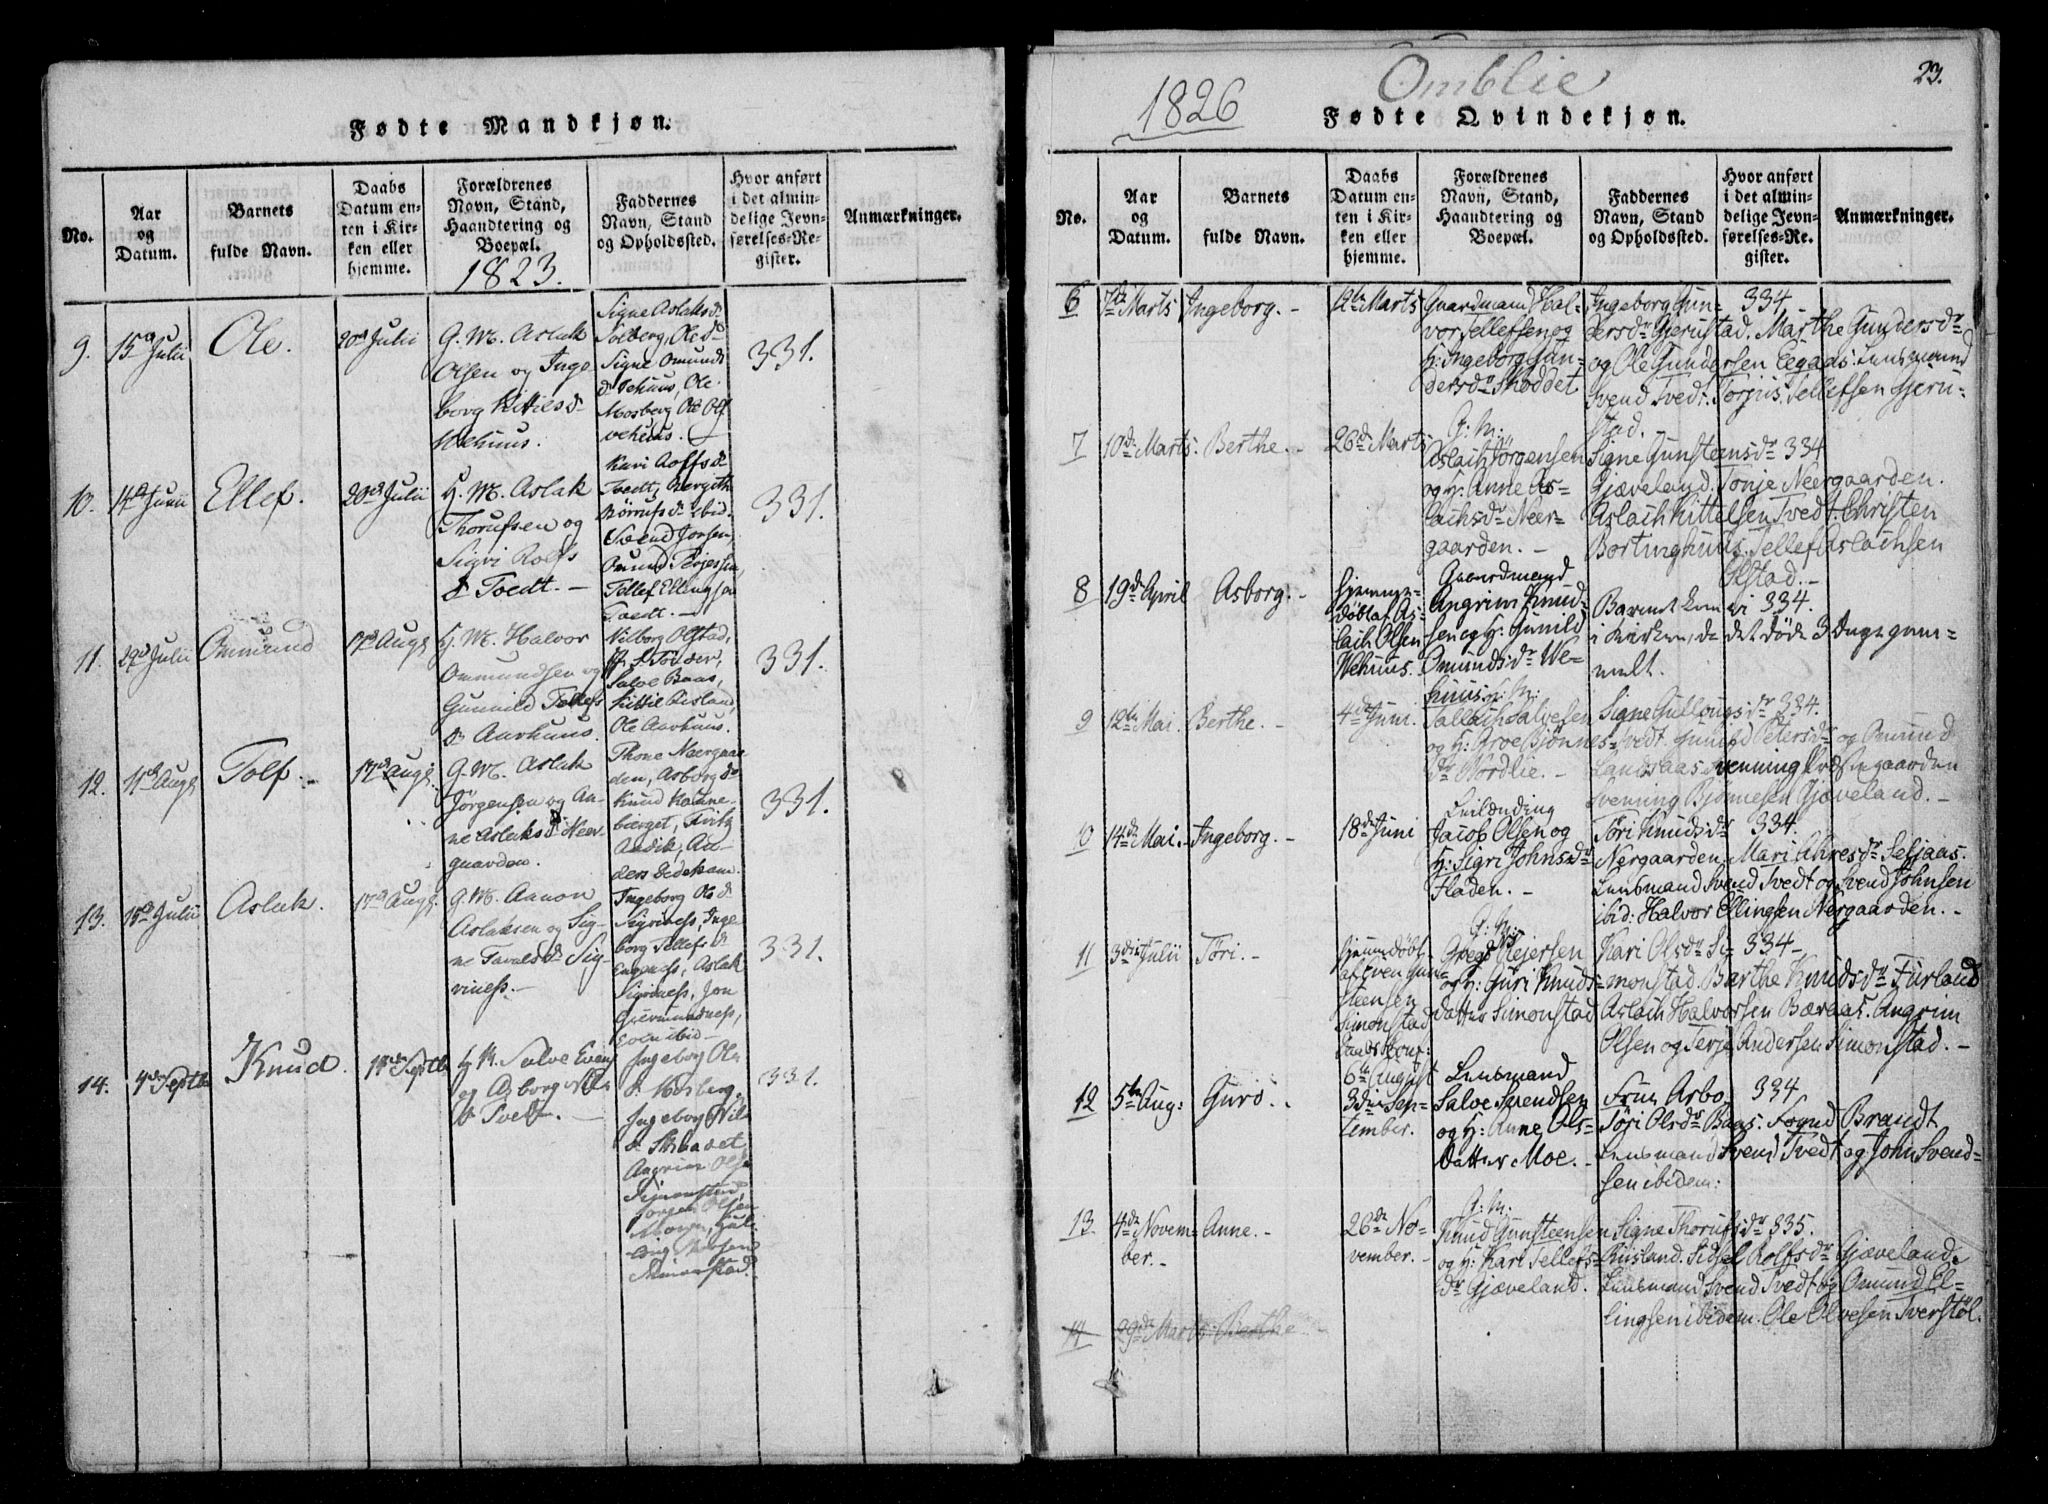 Fødte Mandkjøn.
No.
Aar
og
Datum.
Barnets
fulde Navn.
Daabs
Datum en-
ten i Kir-
ken eller
hjemme.
Forældrenes
Navn, Stand,
Haandtering og
Boepæl.
1823.
Faddernes
Navn, Stand
og Opholdssted.
Hvor anført
i det almin-
delige Jevn-
førelses-Re-
gister.
Anmærkninger.
9.
15de Julii
Ole.
20de Julii
G. M. Aslak
Olsen og Inge
borg Kittelsd
Wehuus.
Signe Aslaksd
Solberg, Ole
Signe Omunds
d Vehuus, Ole
Mosberg Ole Ols
vehuus.
331.
10.
14de Junii
Ellef.
20de Julii
G. M. Aslak
Thorufsen og
Sigri Rolfs
d Tvedt.
Kari Rolfsd
Tvedt,
ibid.
Svend Jonsen,
Omund Terjessen,
Tellef Ellingsen
Tvedt.
331.
11.
29de Julii
Ommund
17de Augs
G. M. Halvor
Ommundsen og
Gunild Tellefs
d Aarhuus.
Vilborg Olstad,
Salve Baas,
Kittil Risland,
Ole Aarhuus.
331.
12.
11te Augs
Tolf.
17de Augs
G. M. Aslak
Jørgensen og An-
ne Aslaksd Neer-
gaarden.
Thone Neergaar
den, Asborg d
Knud
331.
13.
15de Julii
Aslak.
17de Augs
G. M. Aanon
Aslaksen og Sig-
ne Tarald d Sig-
viness.
Ingeborg Ols d
Sigviness, Inge
borg Tellefs d
Engeness, Aslak
Sigviness, Jon
Giermundness,
Even ibid.
331.
14.
4de Septbr
Knud.
14de Septbr
Salve Evens
og Asborg Nils
d Tvedt.
Ingeborg Ols
d Mosberg,
Ingeborg Nils
d
Angrim Olsen
Simonstad,
Jørgen Olsen
Simonstad.
331.
Omblie
23.
1826
Fødte Qvindekjøn.
No.
Aar
og
Datum.
Barnets
fulde Navn.
Daabs
Datum en-
ten i Kir-
ken eller
hjemme.
Forældrenes
Navn, Stand,
Haandtering og
Boepæl.
Faddernes
Navn, Stand
og Opholdssted.
Hvor anført
i det almin-
delige Jevn-
førelses-Re-
gister.
Anmærkninger.
6
7de Marts
Ingeborg.
12te Marts
Gaardmand Hal-
vor Tellefsen og
H: Ingeborg Gun-
dersdr Skoddet
Ingeborg Gun-
dersdr Gjerustad. Marthe Gundersdr
og Ole Gundersen Eegaas: Lensmand
Svend Tvedt. Torjus Tellefsen Gjeru-
stad.
334
7
10de Marts.
Berthe.
26de Marts
G: M:
Aslach Jörgensen
og H: Anne As-
lachsdr Neer-
gaarden.
Signe Gunsteensdr
Gjæveland. Tonje Neergaarden.
Aslach Kittelsen Tvedt. Christen
Bortinghuus. Tellef Aslachsen
Olstad.
334
8
19de April
Asborg.
Hjemme-
döbt af As-
lach Olsen
Wehuus.
Gaardmand
Angrim Knud-
sen og H: Gunild
Omundsdr We-
huus.
Barnet kom ei
i Kirken, da det döde 3 Dage gam-
melt.
334.
9
12te Mai.
Berthe.
4de Juni
G: M:
Tallach Salvesen
og H: Groe Bjönnes-
dr Nordlie.
Signe Gullougsdr
Tvedt. Gunild Petersdr og Omund
Landsaas Svenning Præstegaarden
Svenning Bjönnesen Gjæveland.
334.
10
14de Mai.
Ingeborg.
18de Juni
Jacob Olsen og
H: Sigri Johnsdr
Fladen.
Töri Knudsdr
Nergaarden, Mari Ahresdr Seljaas.
Lensmand Svend Tvedt og Svend Johnsen
ibid: Halvor Ellingsen Nergaarden.
334.
11
3die Julii
Töri.
Hjemmedöbt
af Even Gun-
steensen
Simonstad
6te August
G: M:
Greg Reiersen
og H: Guri Knuds-
datter Simonstad
Kari Olsdr Si-
monstad. Barthe Knudsdr Furland
Aslach Halvorsen Bæraas. Angrim
Olsen og Terje Andersen Simonstad.
334
12
5te Aug:
Guro.
3die Sep-
tember.
Lensmand
Salve Svendsen
og H: Anne Ols-
datter Moe.
Frue Arbo
Töri Olsdr Baas. Fogud Brandt
Lensmand Svend Tvedt og John Svend-
sen ibidem:
334
13.
4de Novem-
ber.
Anne.
26de No-
vember.
G: M:
Knud Gunsteensen
og H: Kari Tellefs-
dr Gjæveland.
Signe Thorufsdr
Risland. Sidsel Rolfsdr Gjæveland.
Lensmand Svend Tvedt og Omund El-
lingsen ibidem. Ole Olvesen Tverstöl.
335.
14
29de Marts
Berthe